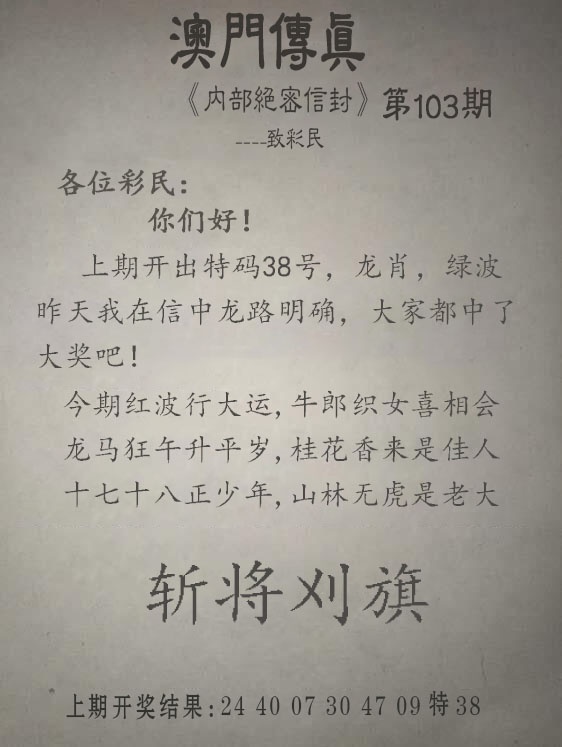 澳門傳眞
《内部絕密信封》第103期
----致彩民
各位彩民:
你们好!
上期开出特码38号，龙肖，绿波
昨天我在信中龙路明确，大家都中了
大奖吧!
今期红波行大运,牛郎织女喜相会
龙马狂午升平岁,桂花香来是佳人
十七十八正少年,山林无虎是老大
斩将刈旗
上期开奖结果:24 40 07 30 47 09 特 38